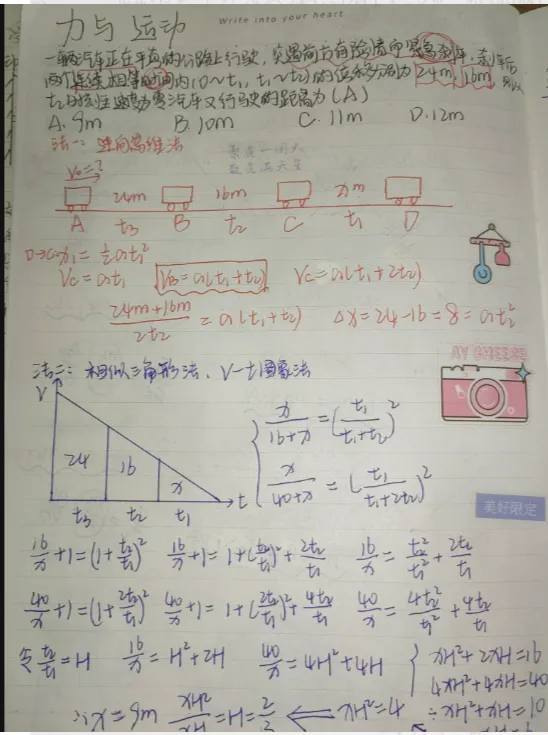 Write into your heart
力与运动
一辆汽车正在平直的公路上行驶,突遇前方有险情而紧急刹车,刹车后
两个连续相等时间内(0~t₁, t₁~t₂)的位移分别为24m,16m,则从
t₂时刻到速度为零汽车又行驶的距离为(A)
A. 9m B. 10m C. 11m D. 12m
法一:逆向思维法
V₀=?
24m 16m xm
A t₃ B t₂ C t₁ D
D→C: x₁=½at₁²
Vc=at₁ VB=a(t₁+t₂) Vc=a(t₁+2t₂)
(24m+16m)/2t₂=a(t₁+t₂) Δx=24-16=8=at₂²
法二:相似三角形法、V-t图象法
V
24 16 x
t₃ t₂ t₁ t
x/(16+x)=(t₁/(t₁+t₂))²
x/(40+x)=(t₁/(t₁+2t₂))²
美好限定
16/x+1=(1+t₂/t₁)² 16/x+1=1+(t₂/t₁)²+2t₂/t₁ 16/x=t₂²/t₁²+2t₂/t₁
40/x+1=(1+2t₂/t₁)² 40/x+1=1+(2t₂/t₁)²+4t₂/t₁ 40/x=4t₂²/t₁²+4t₂/t₁
令t₂/t₁=H 16/x=H²+2H 40/x=4H²+4H
xH²+2xH=16
4xH²+4xH=40
∴x=9m xH²/xH=H=2/3 ⇐ xH²=4 ÷xH²+xH=10